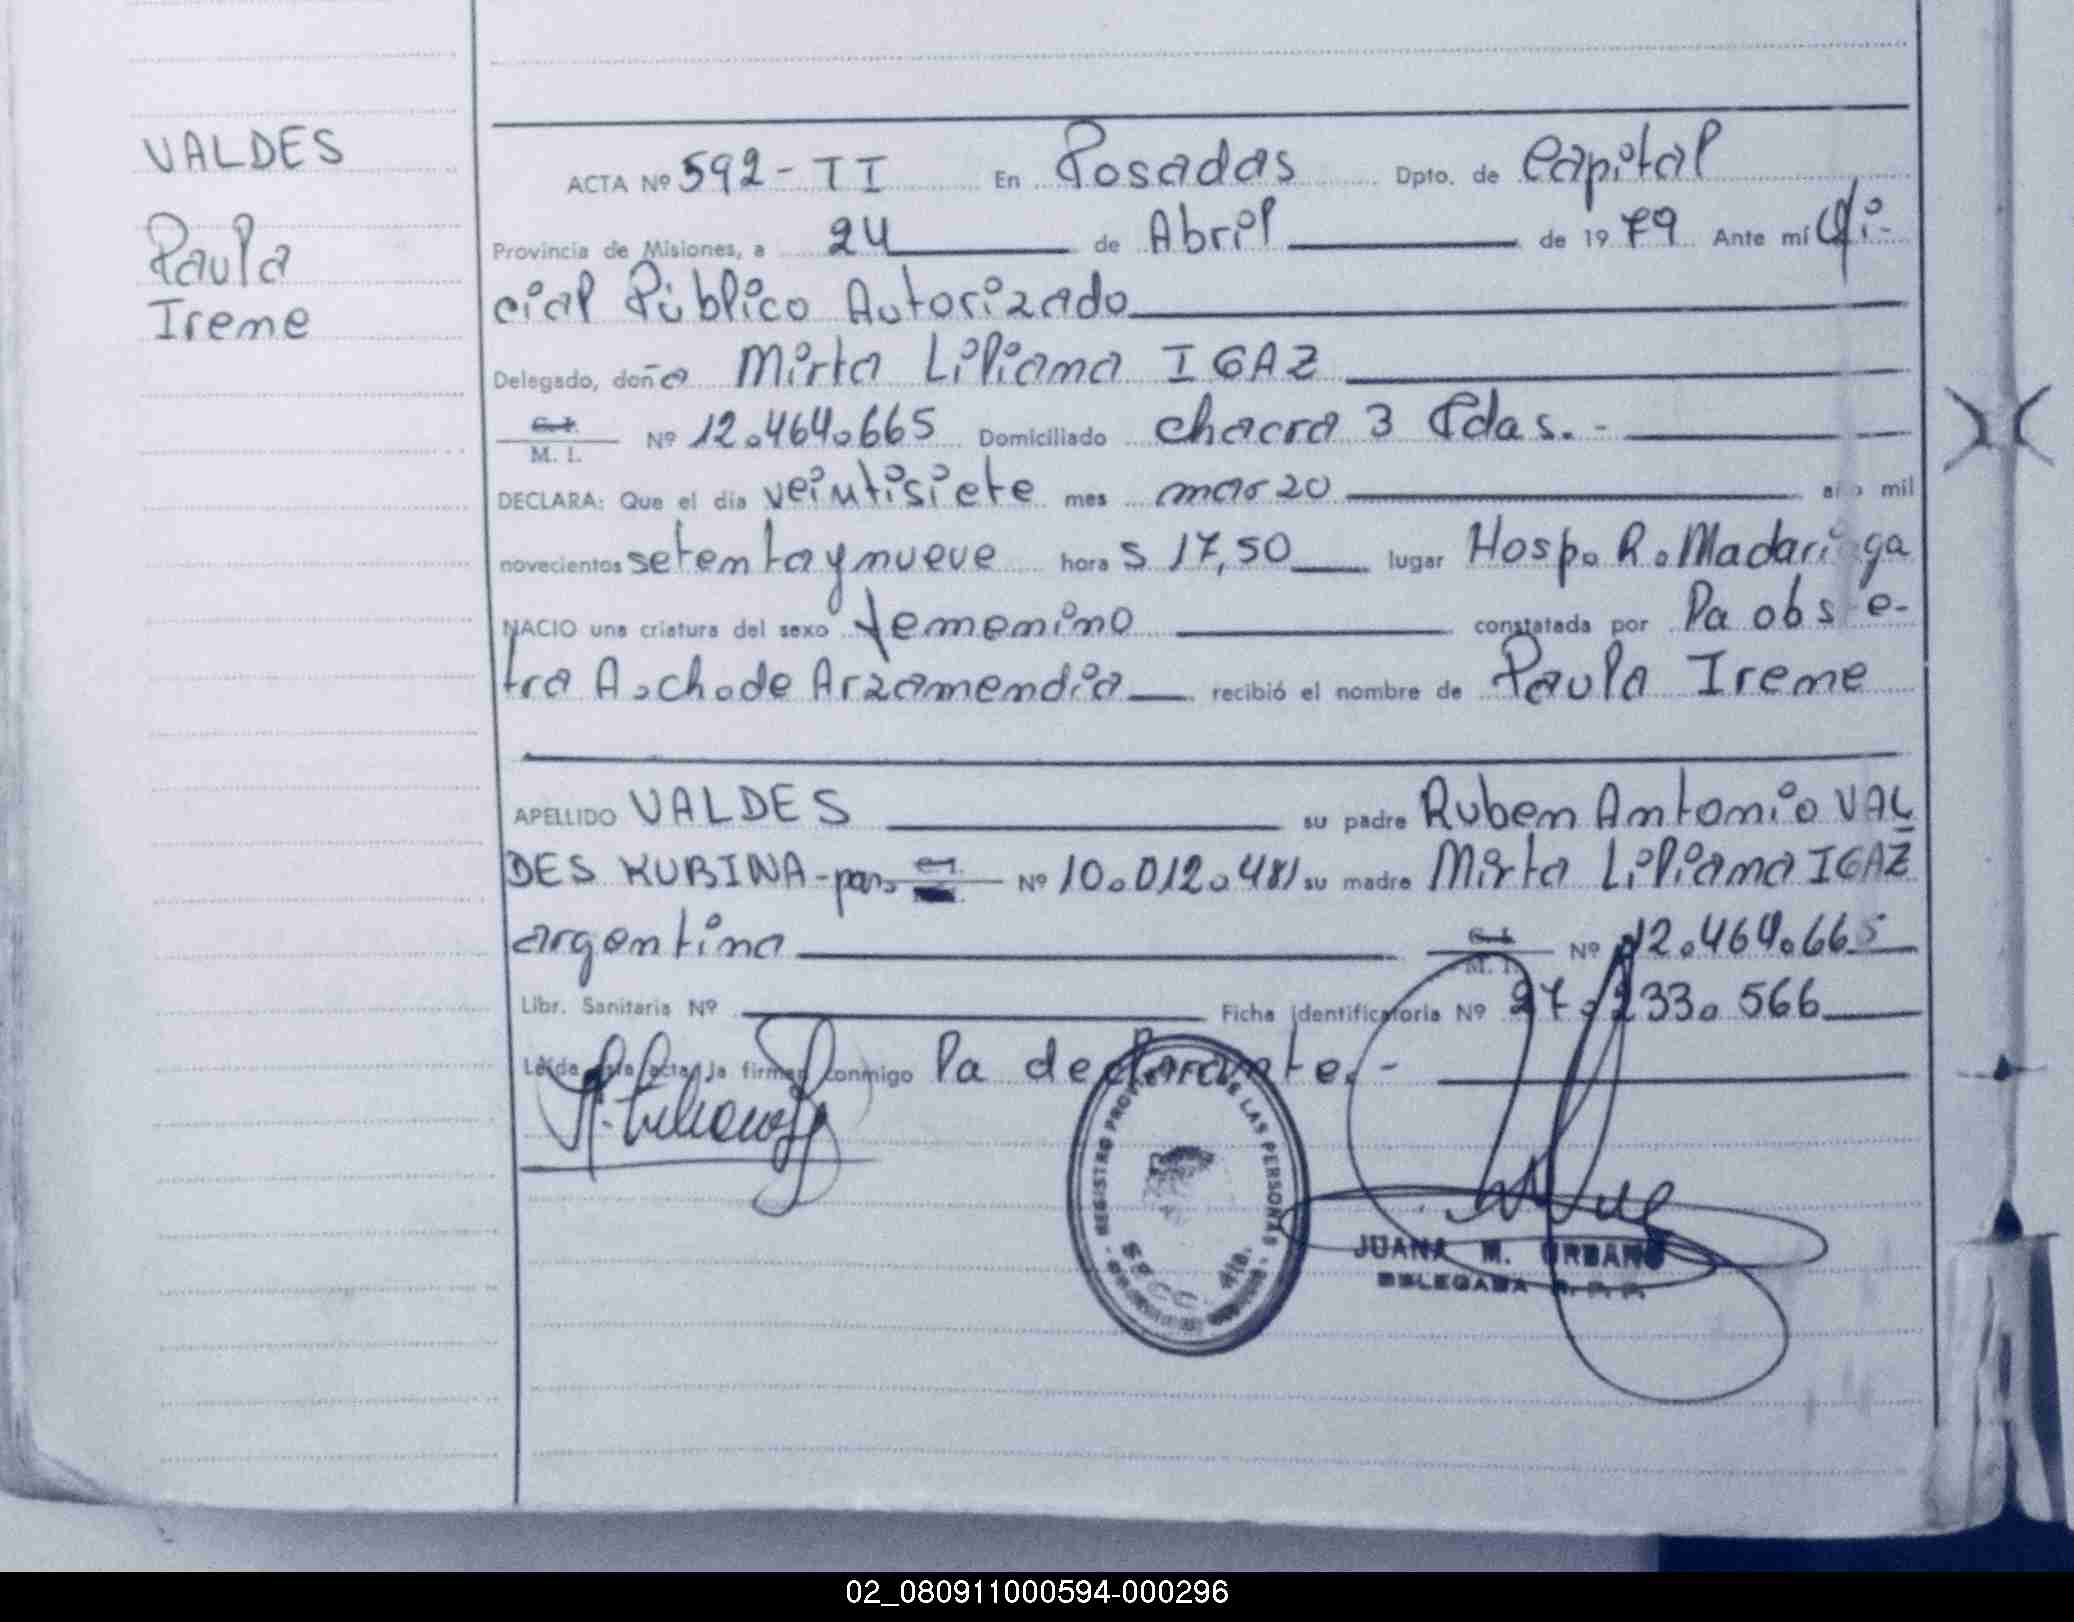 VALDES
Paula
Irene
ACTA Nº 592-TI En Posadas Dpto. de Capital
Provincia de Misiones, a 24 de Abril de 1979 Ante mí Ofi-
cial Público Autorizado
Delegado, doña Mirta Liliana IGAZ
C.I.
M. I. Nº 12.464.665 Domiciliado chacra 3 Pdas.-
DECLARA: Que el día veintisiete mes marzo año mil
novecientos setenta y nueve hora s 17,50 lugar Hosp. R. Madariaga
NACIO una criatura del sexo femenino constatada por la obste-
tra A. ch. de Arzamendia recibió el nombre de Paula Irene
APELLIDO VALDES su padre Ruben Antonio VAL
DES KUBINA - par. C.I. Nº 10.012.481 su madre Mirta Liliana IGAZ
argentina C.I. Nº 12.464.665
M. I.
Libr. Sanitaria Nº Ficha identificatoria Nº 27.233.566
Leída esta acta, la firman conmigo la declarante.-
REGISTRO LAS PERSONAS
JUANA M. URBANO
DELEGADA R. P. P.
02_080911000594-000296